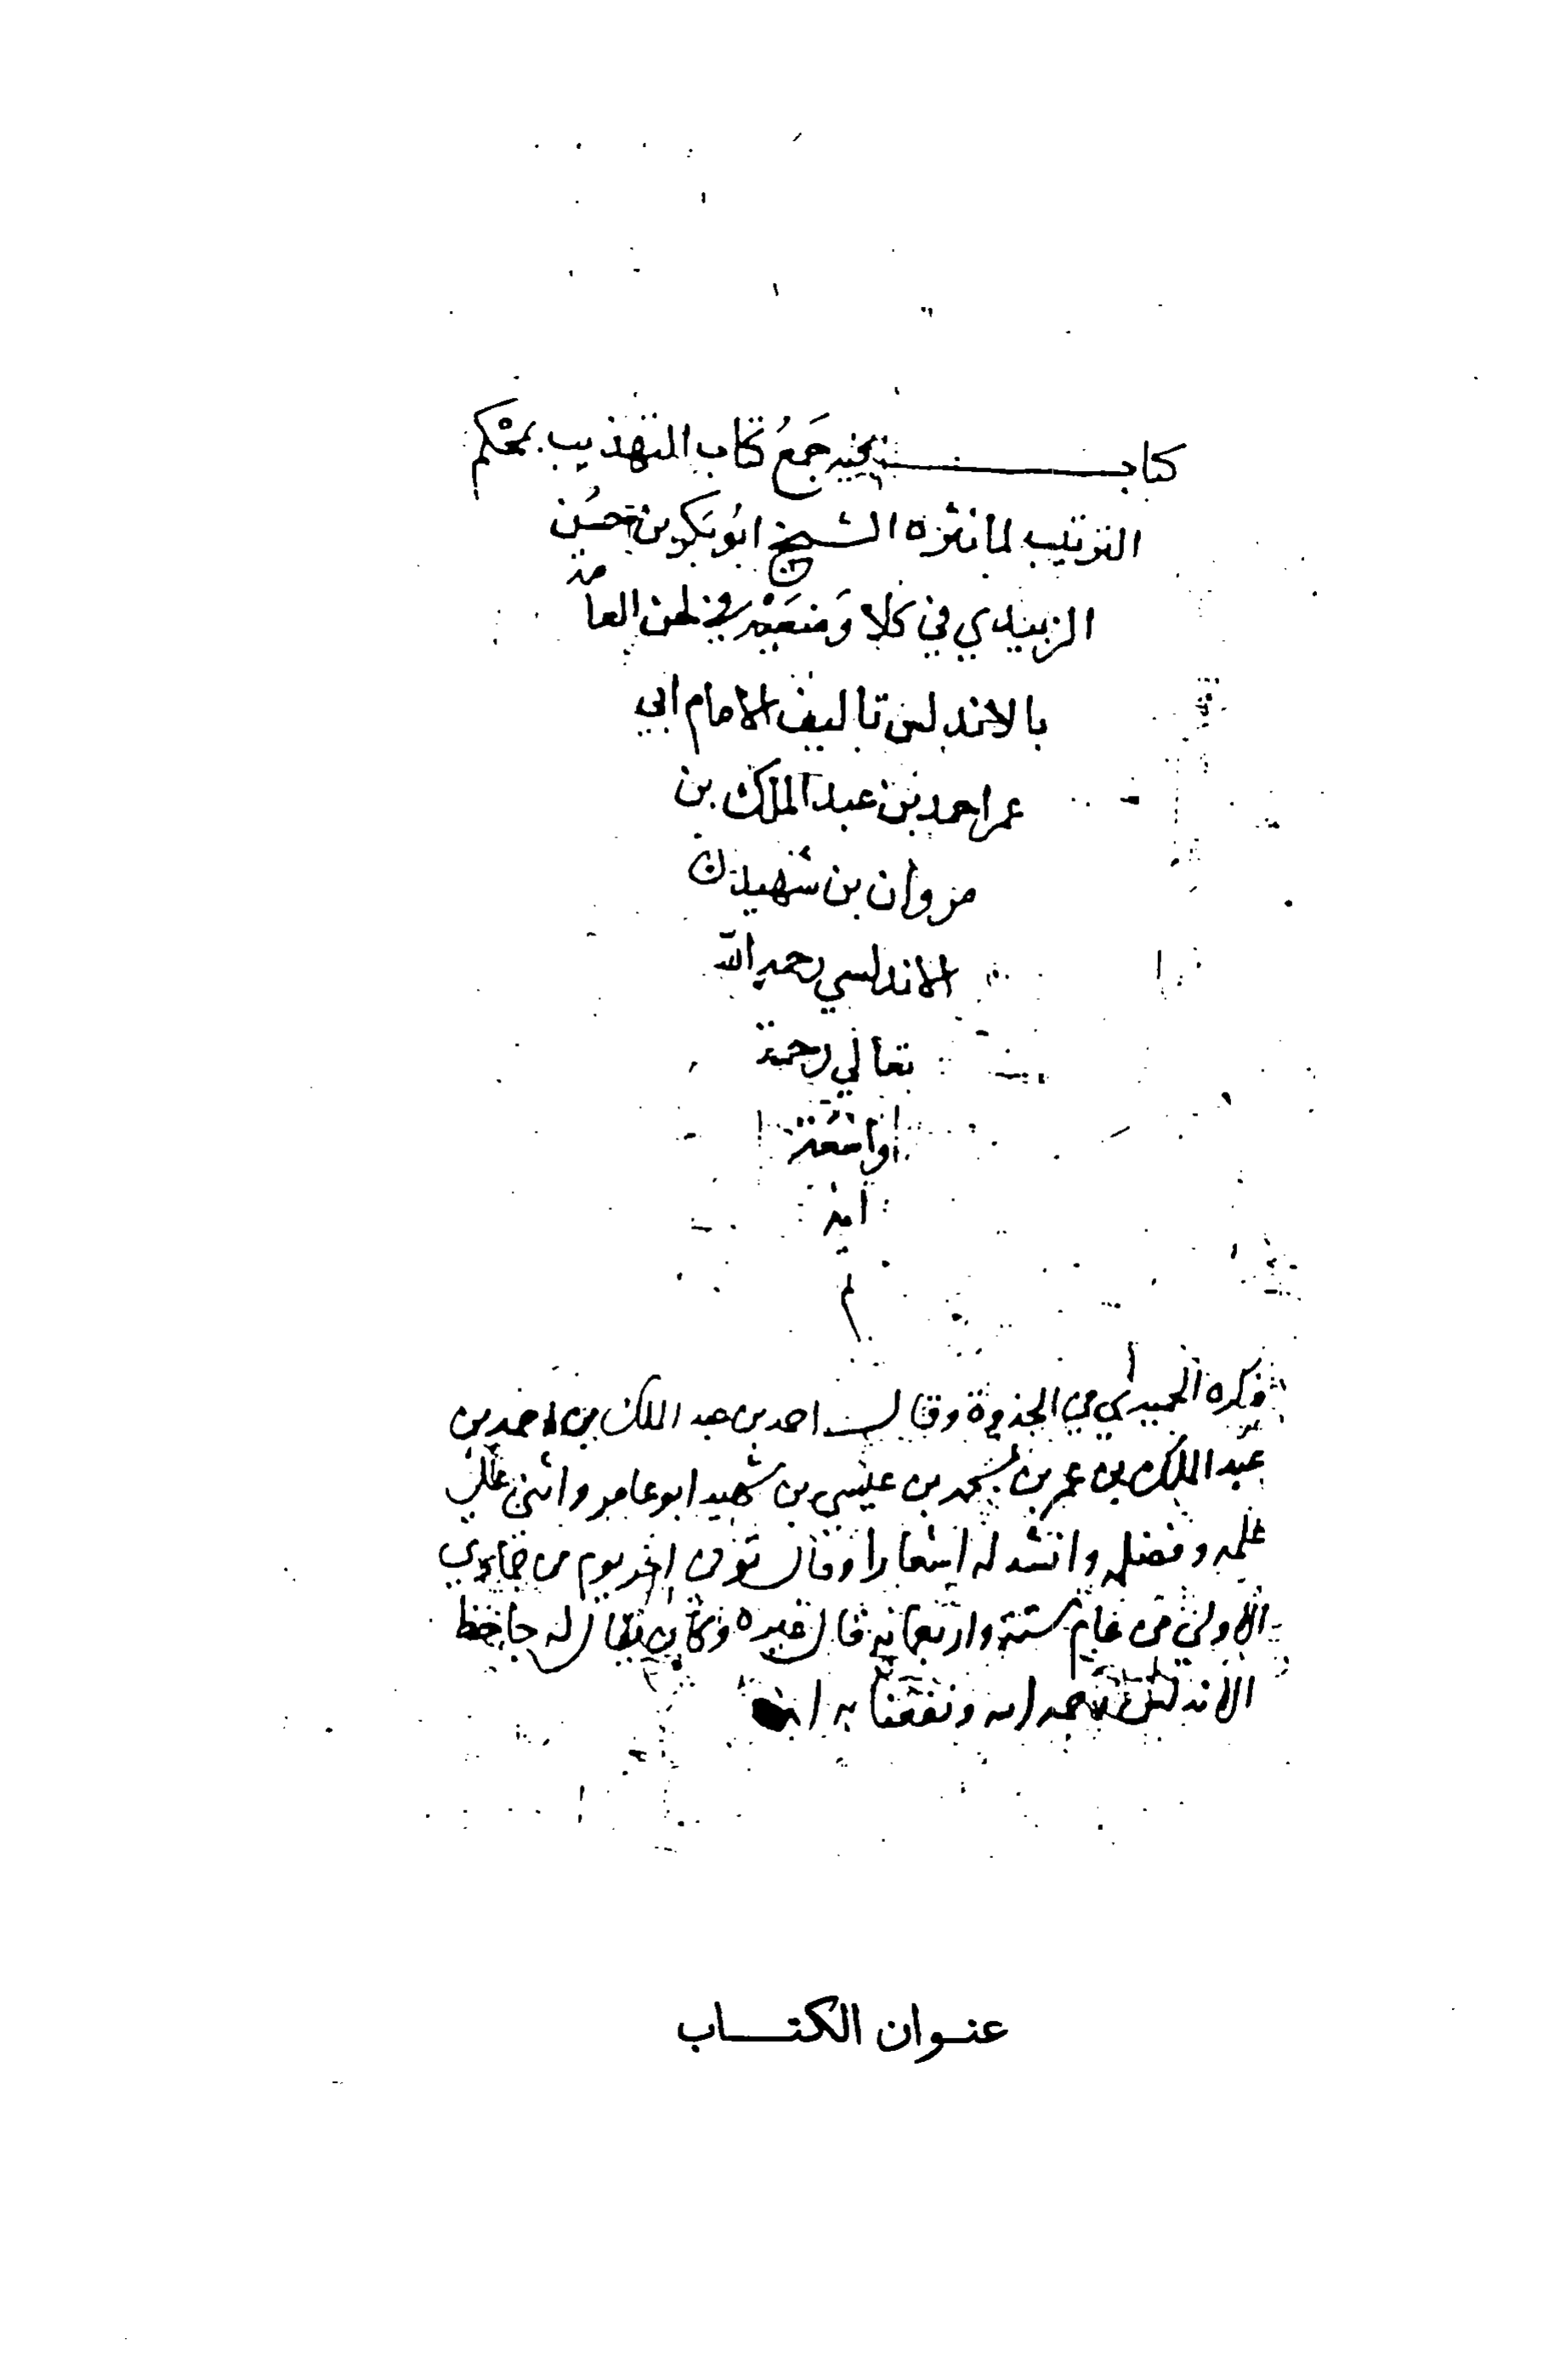 كتاب فيه جَمَعُ كتاب التهذيب بمحْكم
الترتيب لما نثره الشيخ ابو بكر بن حسن
الزبيدي في كلا وَضعَيْه في لحن العامة
بالاندلس تاليف الامام ابي
عمر احمد بن عبد الملك بن
مروان بن شهيد
الاندلسي رحمه الله
تعالي رحمة
واسعة
امين
م
ذكره الحميدي في الجذوة وقال احمد بن عبد الملك بن احمد بن
عبد الملك بن عمر بن محمد بن عيسى بن شهيد ابو عامر واثنى على
علمه وفضله وانشد له اشعارا وقال توفى اخر يوم من جمادي
الاولى من عام ستة واربعماية قال غيره وكان يقال له جاحظ
الاندلس رحمه الله ونفعنا به
عنوان الكتاب